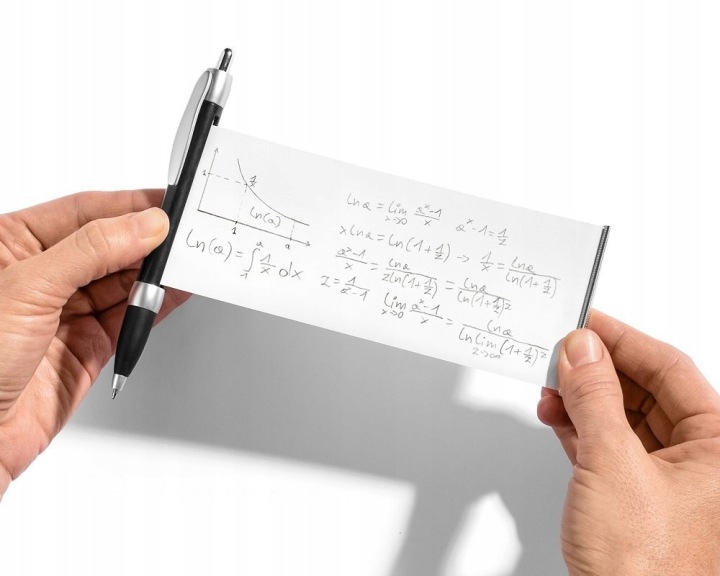 1
1/x
ln(a)
1 a
ln(a) = ∫₁ᵃ 1/x dx
ln a = lim x→0 (aˣ-1)/x   aˣ-1 = 1/z
x ln a = ln(1+1/z) -> 1/x = ln a / ln(1+1/z)
(aˣ-1)/x = ln a / (z ln(1+1/z)) = ln a / ln(1+1/z)ᶻ
z = 1/(aˣ-1)   lim x→0 (aˣ-1)/x = ln a / (ln lim z→∞ (1+1/z)ᶻ)